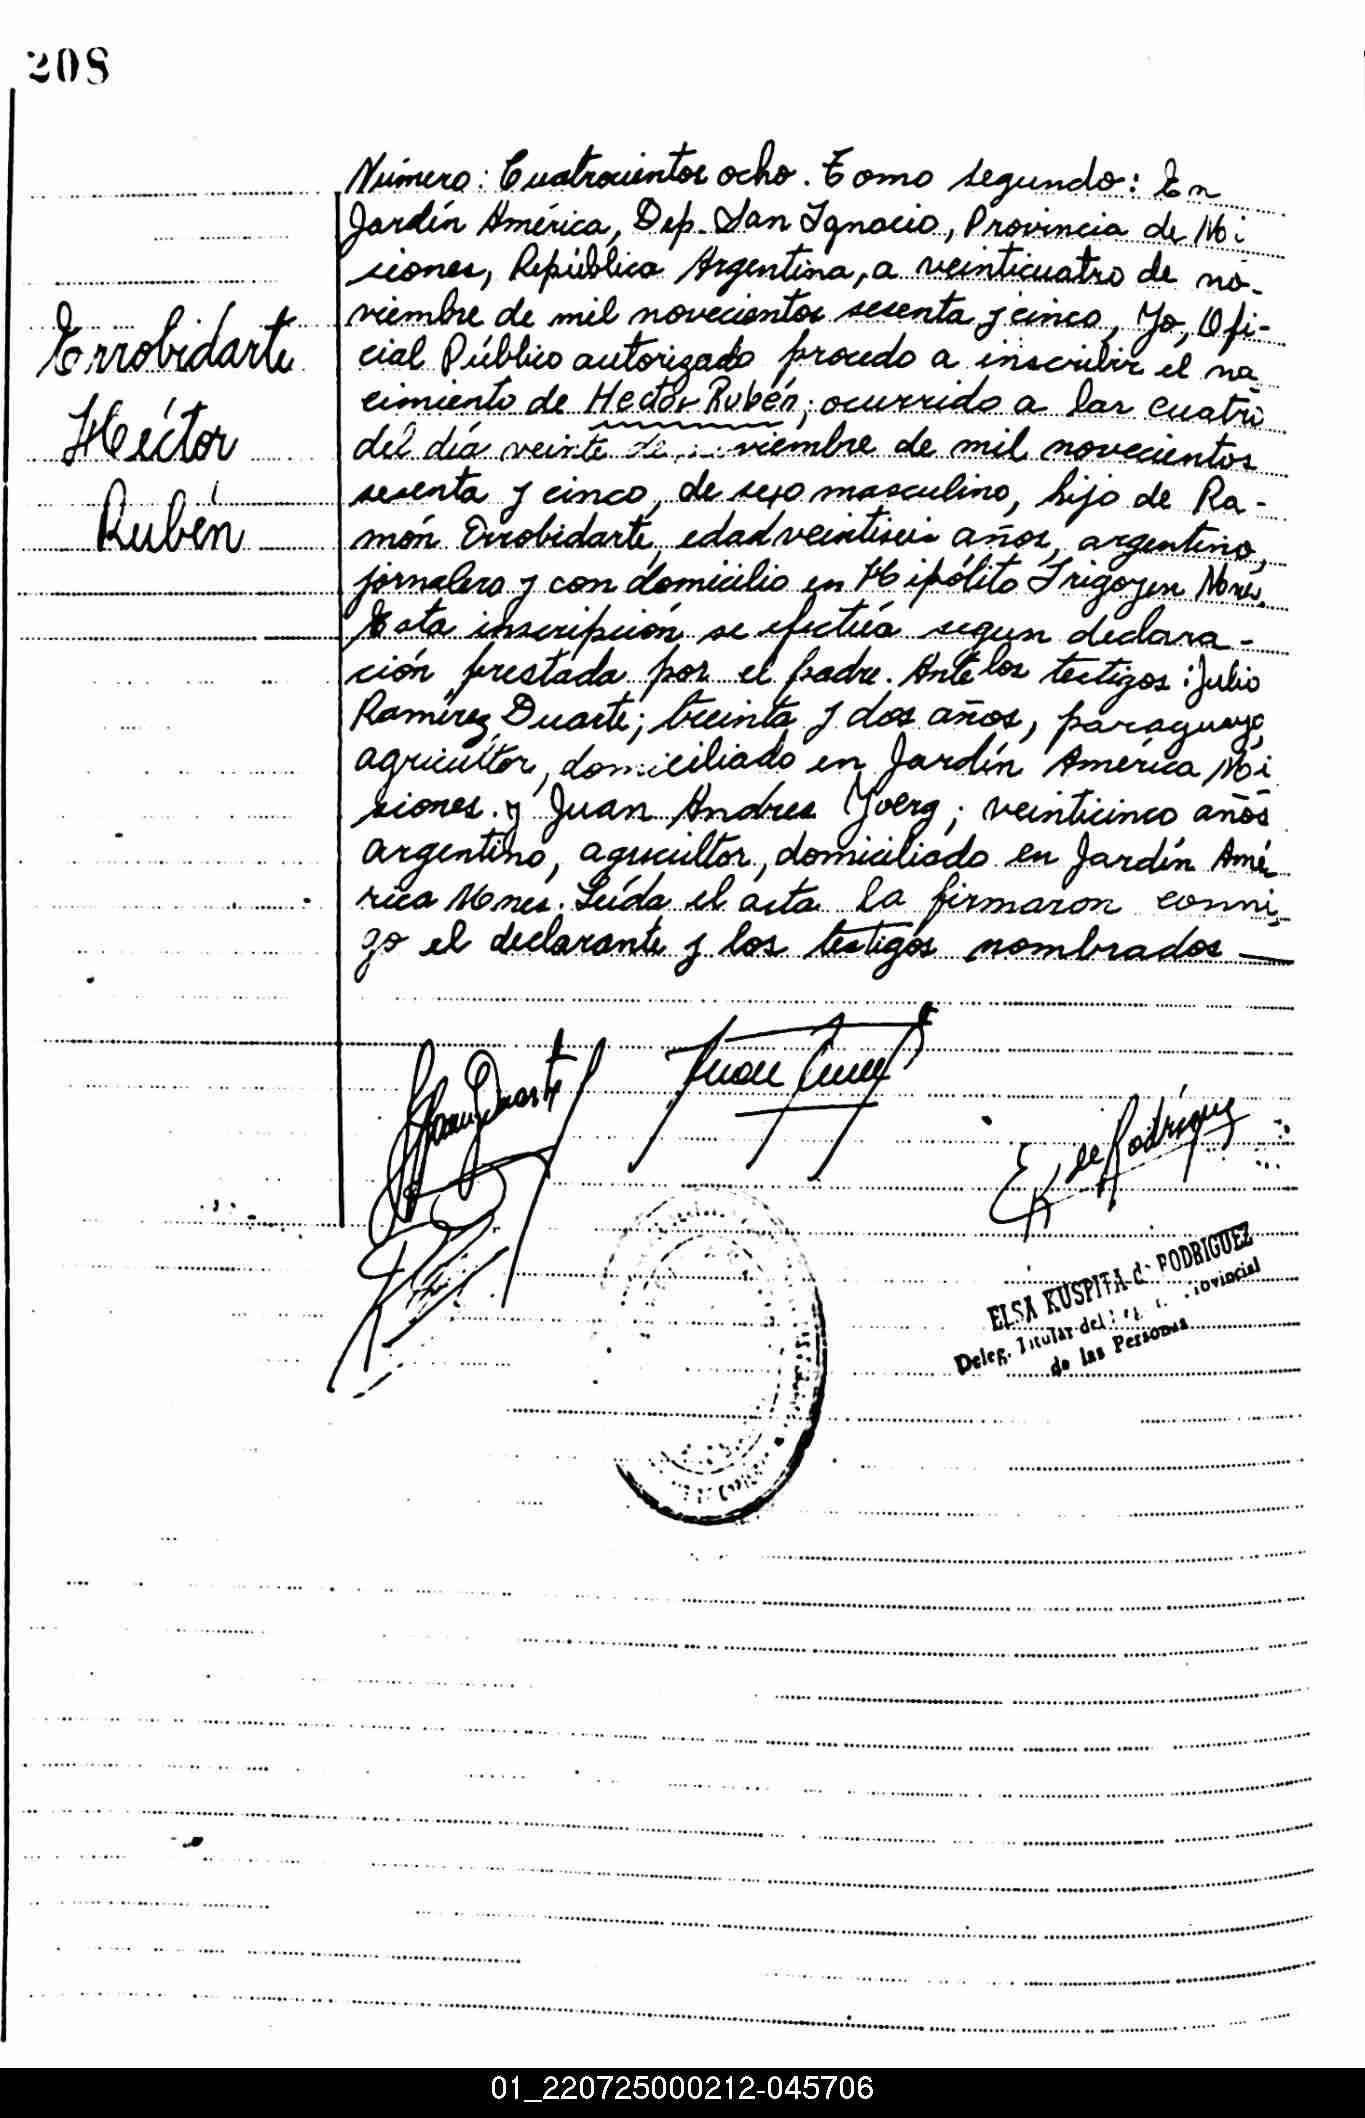 208
Errobidarte
Héctor
Rubén
Número: Cuatrocientos ocho. Tomo segundo: En
Jardín América, Dep. San Ignacio, Provincia de Mi
siones, República Argentina, a veinticuatro de no-
viembre de mil novecientos sesenta y cinco, Yo, Ofi-
cial Público autorizado procedo a inscribir el na
cimiento de Hector Rubén; ocurrido a las cuatro
del día veinte de noviembre de mil novecientos
sesenta y cinco, de sexo masculino, hijo de Ra-
món Errobidarte, edad veintiseis años, argentino,
jornalero y con domicilio en Hipólito Irigoyen Mnes.
Esta inscripción se efectúa segun declara-
ción prestada por el padre. Ante los testigos: Julio
Ramírez Duarte; treinta y dos años, paraguayo,
agricultor, domiciliado en Jardín América Mi
siones. y Juan Andres Yverg; veinticinco años
argentino, agricultor, domiciliado en Jardín Amé
rica Mones. Leída el acta la firmaron conmi-
go el declarante y los testigos nombrados
Duarte
Juan
E K de Rodríguez
ELSA KUSPITA de RODRIGUEZ
Deleg. Titular del Provincial
de las Personas
01_220725000212-045706